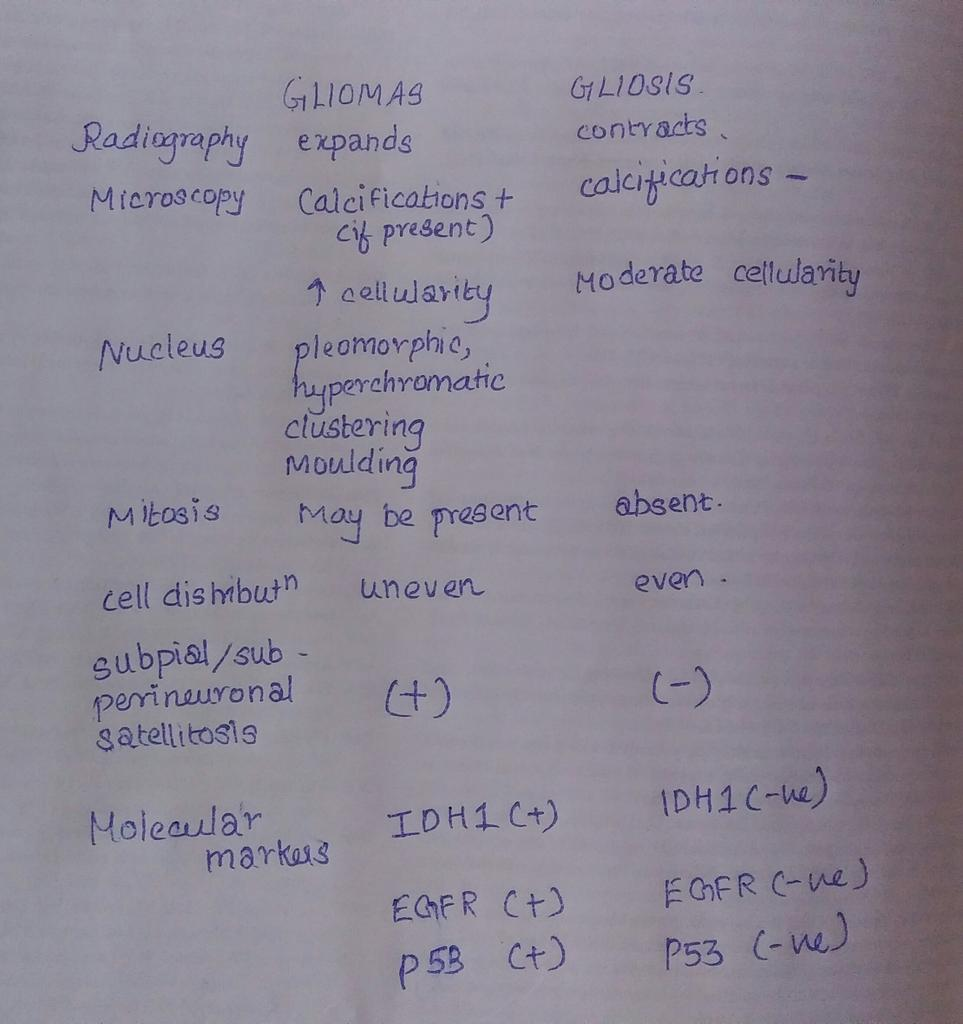 GLIOMAS GLIOSIS.
Radiography expands contracts.
Microscopy Calcifications + calcifications -
(if present)
↑ cellularity Moderate cellularity
Nucleus pleomorphic,
hyperchromatic
clustering
Moulding
Mitosis May be present absent.
cell distributn uneven even.
subpial/sub-
perineuronal (+) (-)
satellitosis
Molecular IDH1 (+) IDH1 (-ve)
markers
EGFR (+) EGFR (-ve)
p53 (+) P53 (-ve)